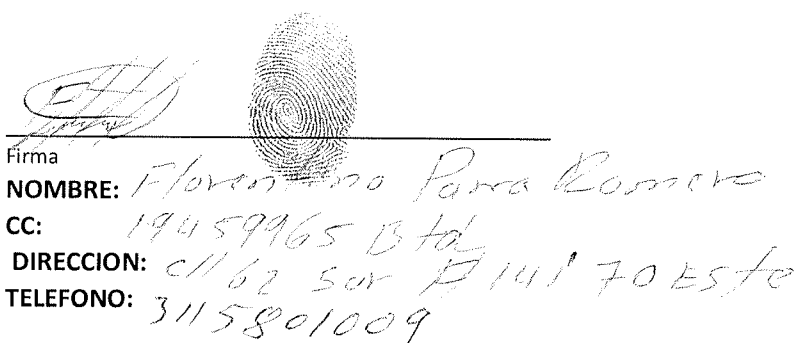 Firma
NOMBRE: Florentino Parra Romero
CC: 19459965 Btá
DIRECCION: Cll 62 Sur # 14 I 70 Este
TELEFONO: 3115801009